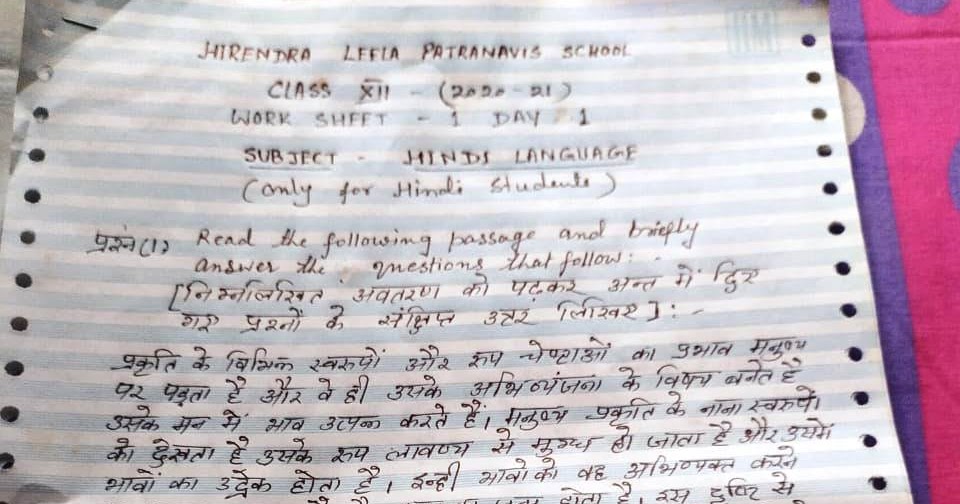 HIRENDRA LEELA PATRANAVIS SCHOOL
CLASS XII - (2020-21)
WORK SHEET - 1 DAY 1
SUBJECT - HINDI LANGUAGE
(only for Hindi Students)
प्रश्न(1) Read the following passage and briefly
answer the questions that follow: -
[निम्नलिखित अवतरण को पढ़कर अन्त में दिए
गए प्रश्नों के संक्षिप्त उत्तर लिखिए] : -
प्रकृति के विभिन्न स्वरूपों और रूप चेष्टाओं का प्रभाव मनुष्य
पर पड़ता है और वे ही उसके अभिव्यंजना के विषय बनते है
उसके मन में भाव उत्पन्न करते हैं। मनुष्य प्रकृति के नाना स्वरूपों
को देखता है उसके रूप लावण्य से मुग्ध हो जाता है और उसमें
भावों का उद्रेक होता है। इन्ही भावों को वह अभिव्यक्त करने
होता है। इस दृष्टि से